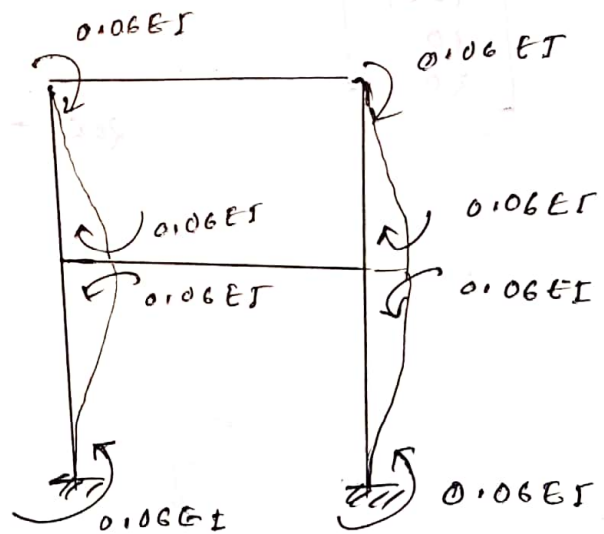 0.06EI
0.06 EI
0.06EI
0.06EI
0.06EI
0.06EI
0.06EI
0.06EI